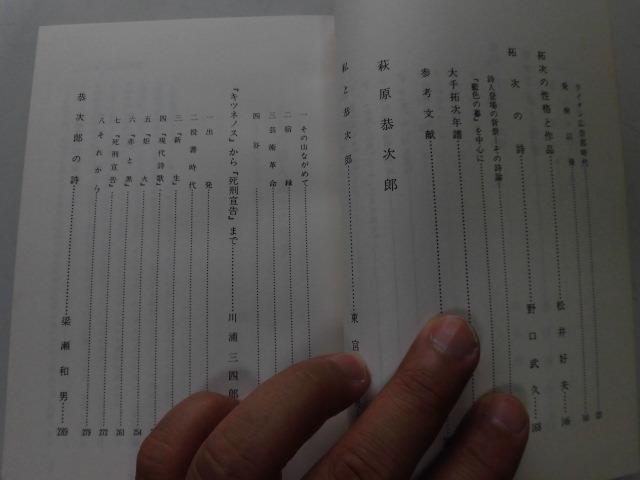 ライオン広告部時代
拓次の性格と作品 松井好夫 146
拓次の詩 野口武久 168
詩人登場の背景―その詩論
『藍色の蟇』を中心に
大手拓次年譜
参考文献
萩原恭次郎
私と恭次郎 東宮
一 その山ながめて
二 宿縁
三 芸術革命
四 谷
『キツネノス』から『死刑宣告』まで 川浦三四郎
一 出発
二 投書時代
三 『新生』
四 『現代詩歌』 254
五 『炬火』
六 『赤と黒』 261
七 『死刑宣告』 272
八 それから 279
恭次郎の詩 梁瀬和男 289